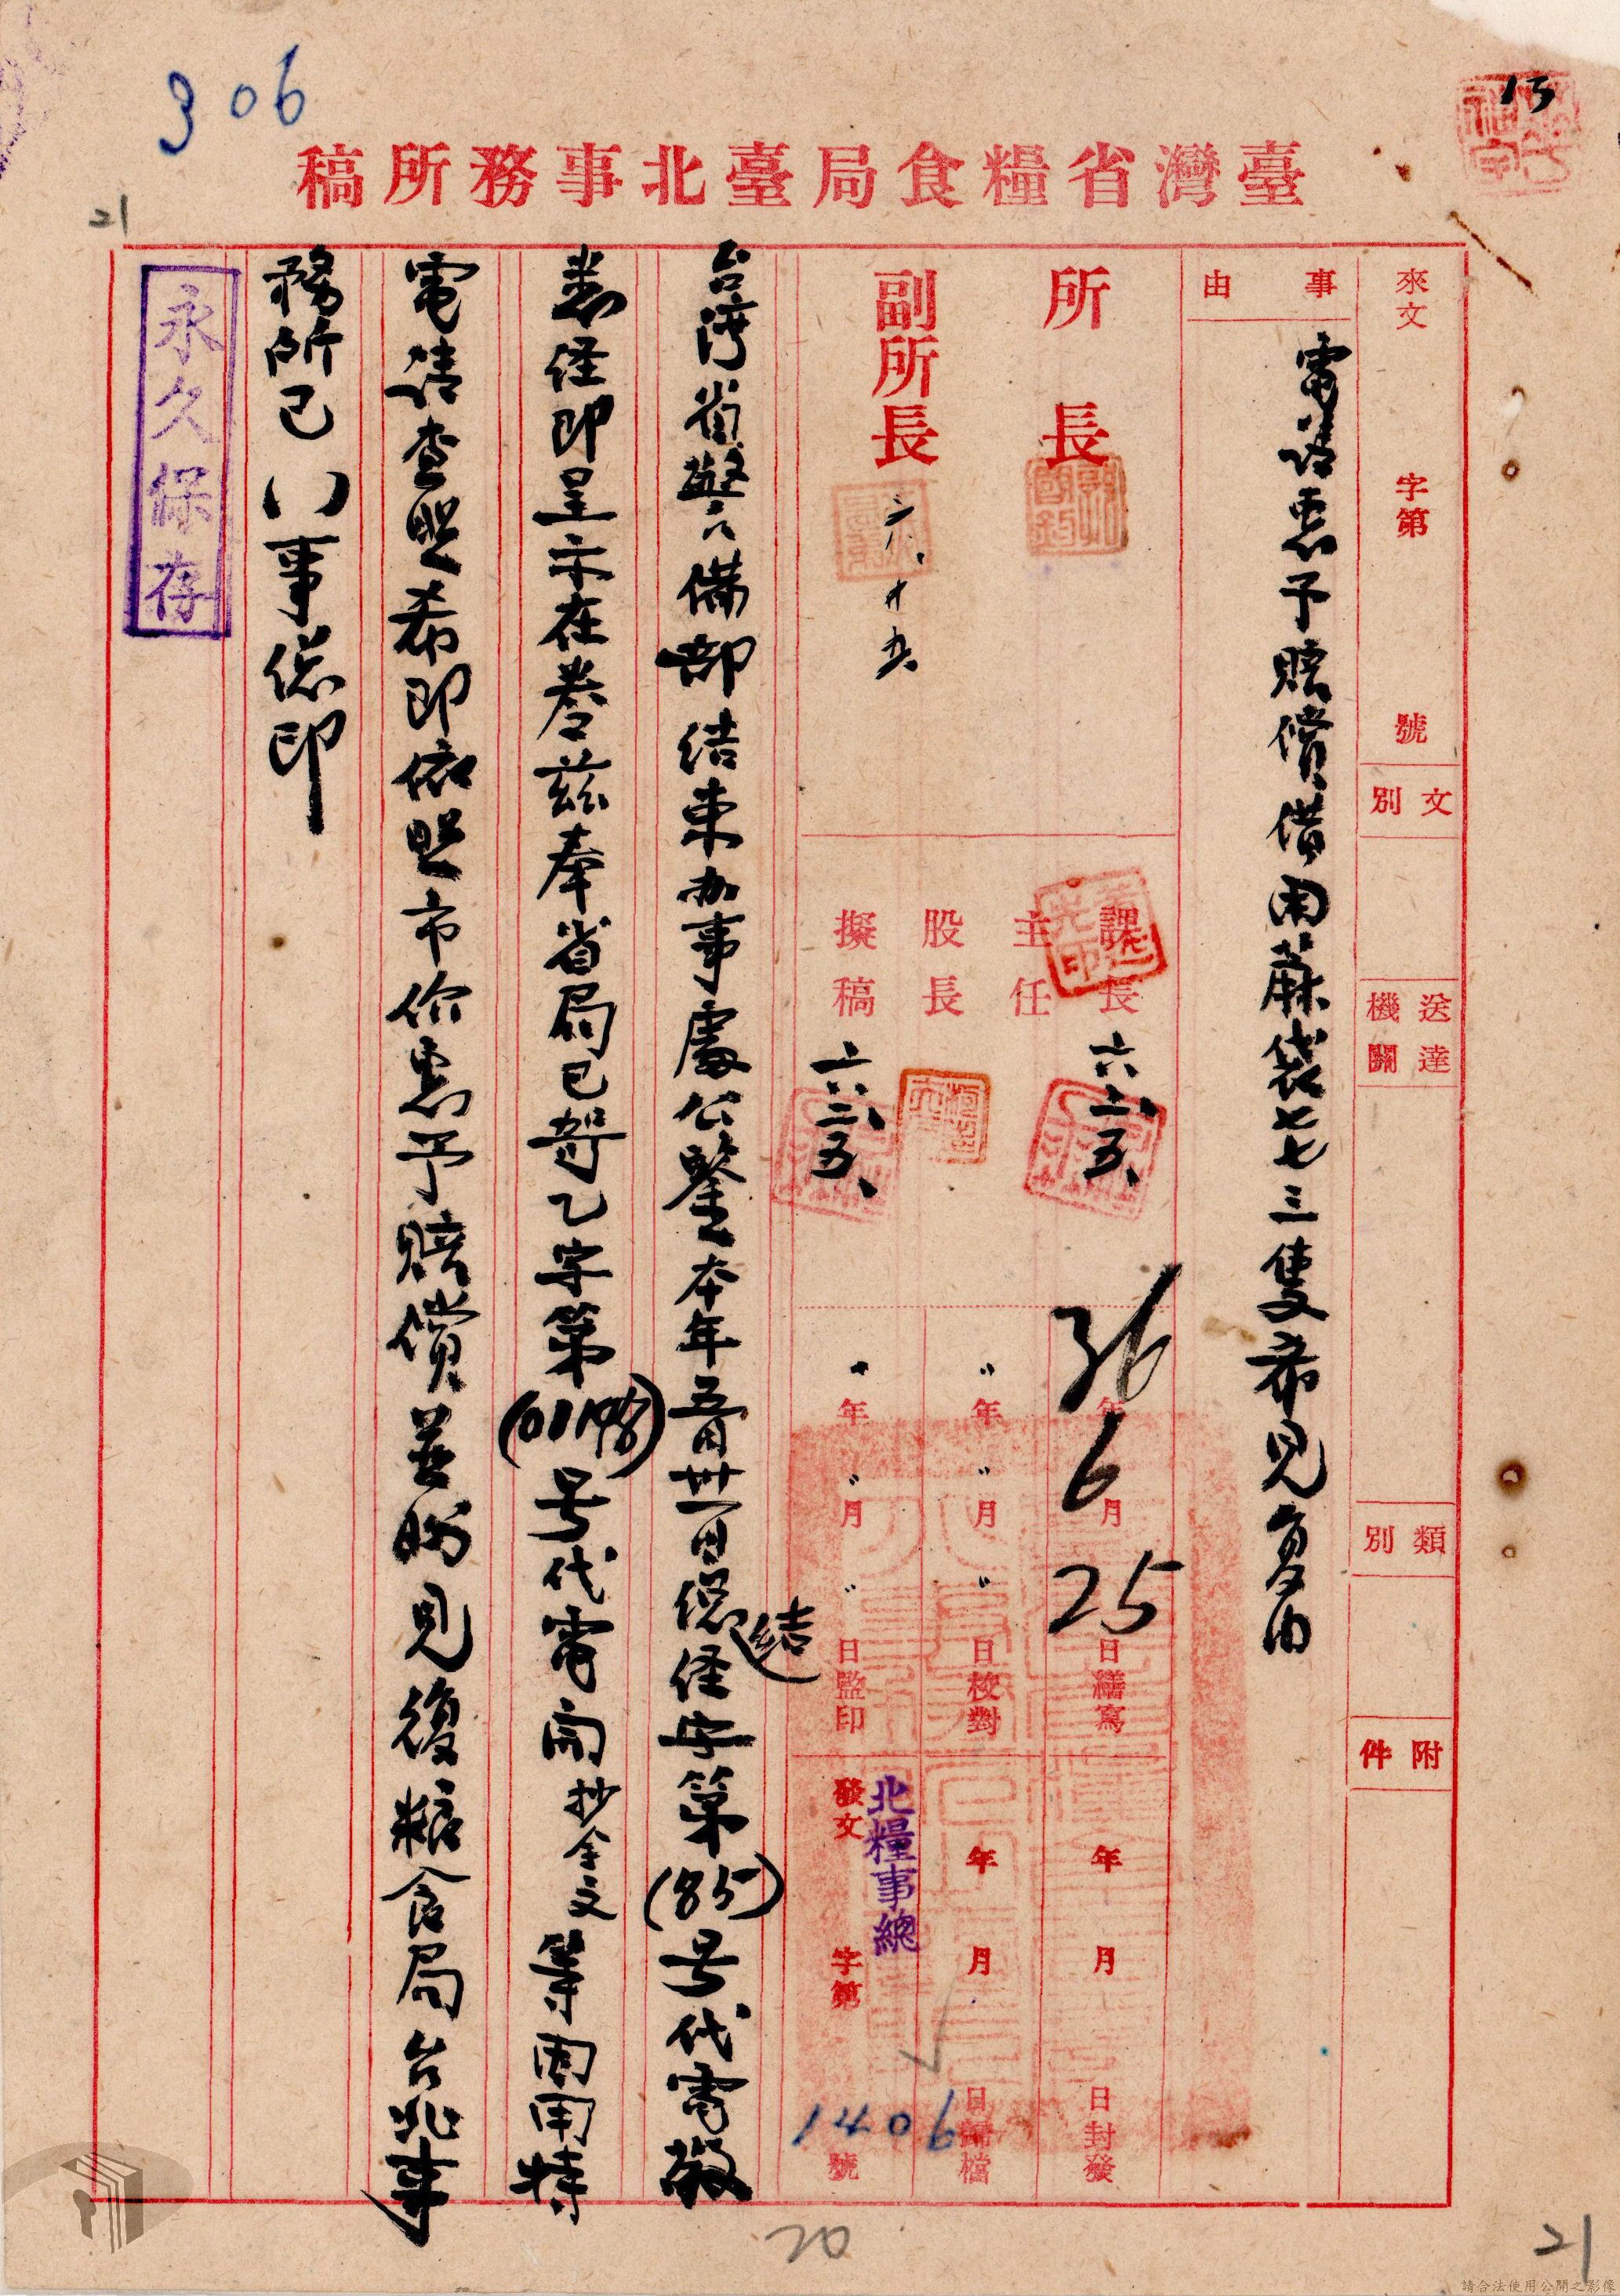 306
13
臺灣省糧食局臺北事務所稿
21
來文 字第 號
文別
送達機關
類別
附件
事由
電請惠予賠償借用蔴袋七七三隻希見复由
所長
副所長
六、廿五、
課長
主任
股長
擬稿
六、廿五、
六、廿五、
36年6月25日繕寫
〃年〃月〃日校對
〃年〃月〃日監印
年 月 日封發
年 月 日歸檔
發文 字第 號
北糧事總
1406
台湾省警备備部結束办事處公鑒本年五月卅一日総結
经字第(85)号代電敬
悉经即呈示在卷茲奉省局已 乙字第 号代電開抄全文等因用特
電請查照希即依照市价惠予賠償並盼見復糧食局台北事
務所已(　)事總印
永久保存
20
21
請合法使用公開之影像